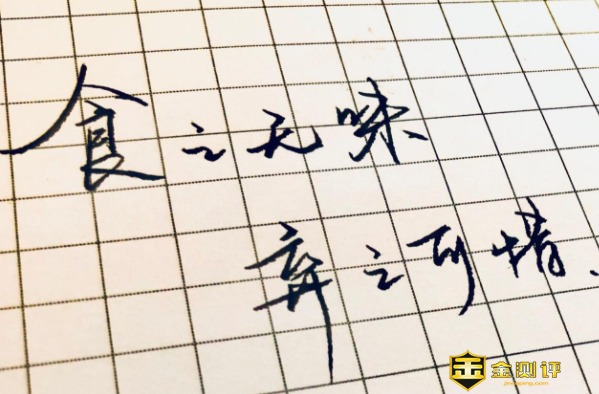 食之无味
弃之可惜、
金测评